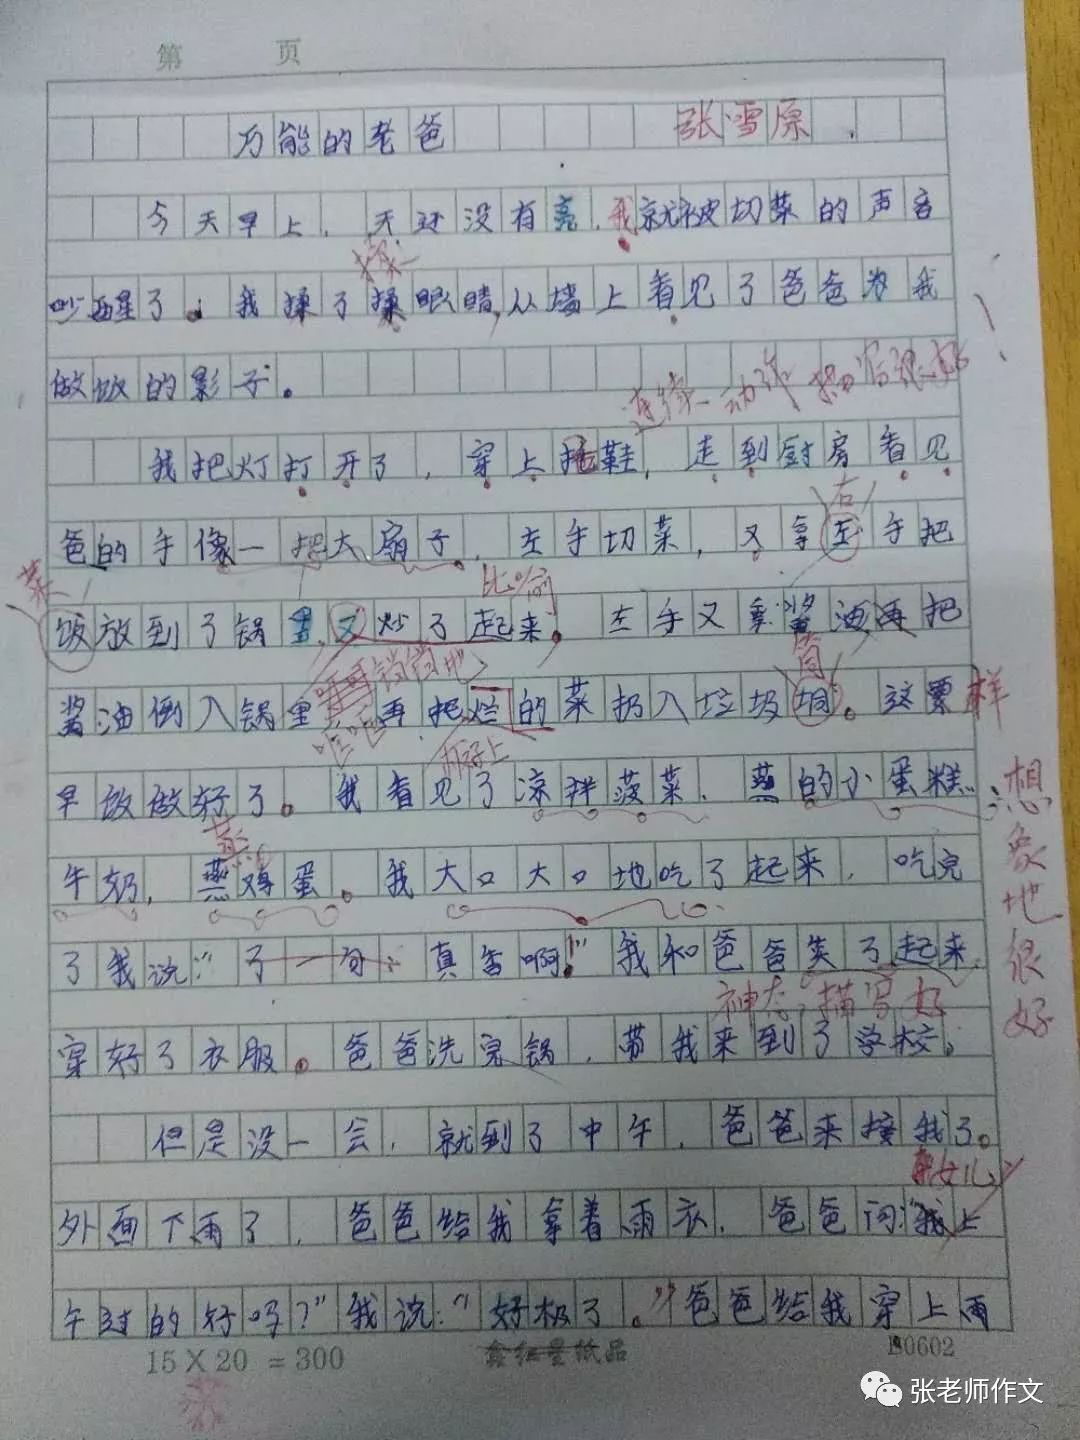 第 页
万能的老爸 张雪原
今天早上，天还没有亮，我就被切菜的声音
揉
吵醒了。我揉了揉眼睛，从墙上看见了爸爸为我
做饭的影子。
连续动作描写很好！
我把灯打开了，穿上拖鞋，走到厨房看见
右
爸的手像一把大扇子，左手切菜，又拿左手把
菜 比喻
饭放到了锅里，又炒了起来。左手又拿酱油再把
筒
酱油倒入锅里，再把烂的菜扔入垃圾垌。这票样
早饭做好了。我看见了凉拌菠菜、蒸的小蛋糕、
想象地很好
蒸
牛奶，蒸鸡蛋。我大口大口地吃了起来，吃完
了我说：“了一句：真香啊！”我和爸爸笑了起来，
神态描写好
穿好了衣服。爸爸洗完锅，带我来到了学校。
但是没一会，就到了中午，爸爸来接我了。
女儿
外面下雨了，爸爸给我拿着雨衣，爸爸问：“我上
午过的好吗？”我说：“好极了。”爸爸给我穿上雨
15×20=300
10602
张老师作文